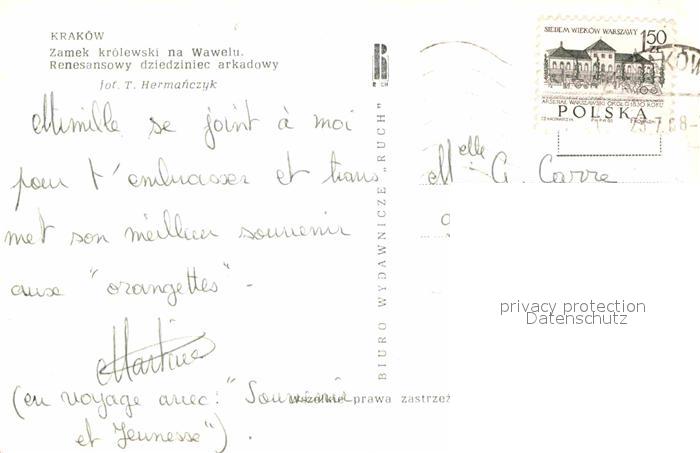 KRAKÓW
Zamek królewski na Wawelu.
Renesansowy dziedziniec arkadowy
fot. T. Hermańczyk
RUCH
SIEDEM WIEKÓW WARSZAWY
1,50 ZŁ
ARSENAŁ WARSZAWSKI OKOŁO 1830 ROKU
POLSKA
Mimille se joint à moi
pour t'embrasser et trans
met son meilleur souvenir
aux "orangettes" -
Martine
(en voyage avec: "Souvenir
et Jeunesse").
BIURO WYDAWNICZE „RUCH"
Wszelkie prawa zastrzeż
Melle G. Carre
privacy protection
Datenschutz